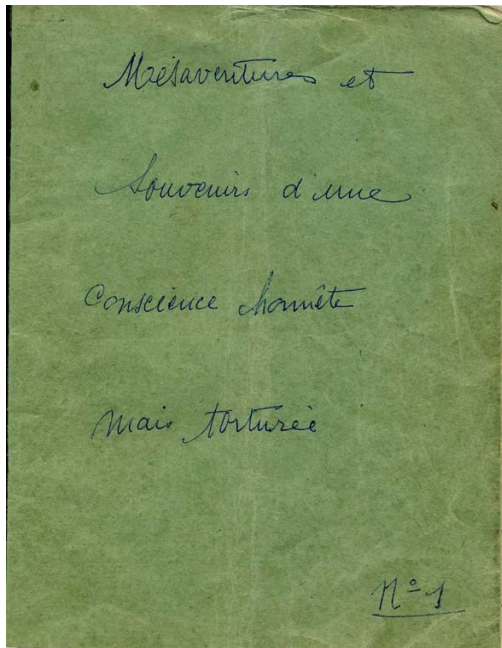 Mésaventures et
Souvenirs d'une
Conscience honnête
mais torturée
N° 1